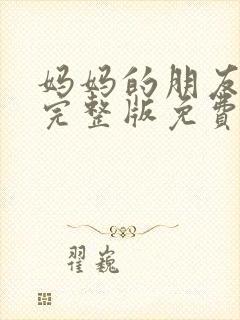 妈妈的朋友
完整版免费
翟巍